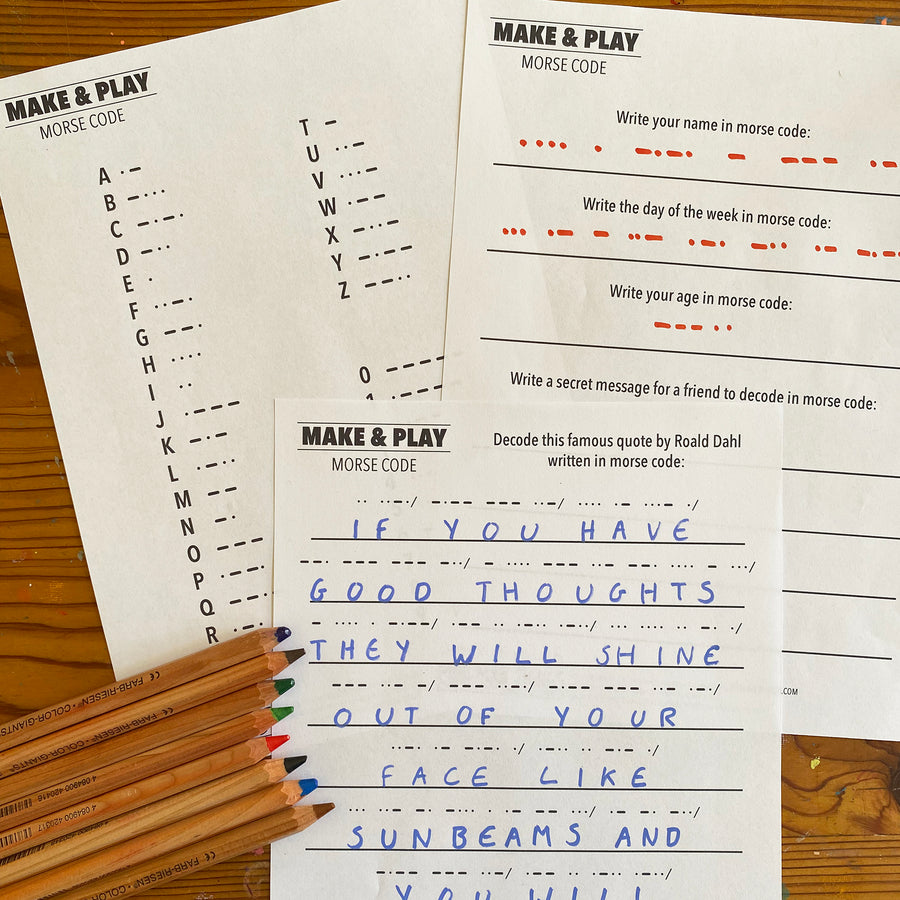 MAKE & PLAY
MORSE CODE
A ·–
B –···
C –·–·
D –··
E ·
F ··–·
G ––·
H ····
I ··
J ·–––
K –·–
L ·–··
M ––
N –·
O –––
P ·––·
Q
R ·–·
T –
U ··–
V ···–
W ·––
X –··–
Y –·––
Z ––··
0
MAKE & PLAY
MORSE CODE
Write your name in morse code:
···· · –·–· – –––
Write the day of the week in morse code:
··· ·– – ··– ·–· –·· ·–
Write your age in morse code:
–––··
Write a secret message for a friend to decode in morse code:
.COM
MAKE & PLAY
MORSE CODE
Decode this famous quote by Roald Dahl
written in morse code:
·· ··–·/ –·–– ––– ··–/ ···· ·– ···– ·/
IF YOU HAVE
––· ––– ––– –··/ – ···· ––– ··– ––· ···· – ···/
GOOD THOUGHTS
– ···· · –·––/ ·–– ·· ·–·· ·–··/ ··· ···· ·· –· ·/
THEY WILL SHINE
––– ··– –/ ––– ··–·/ –·–– ––– ··– ·–·/
OUT OF YOUR
··–· ·– –·–· ·/ ·–·· ·· –·– ·/
FACE LIKE
··· ··– –· –··· · ·– –– ···/ ·– –· –··/
SUNBEAMS AND
–·–– ––– ··–/ ·–– ·· ·–·· ·–··/
YOU WILL
FARB-RIESEN® · COLOR-GIANTS
FARB-RIESEN® · COLOR-GIANTS
4 084900 420416
4 084900 420317
FARB-RIESEN® · COLOR-GIANTS